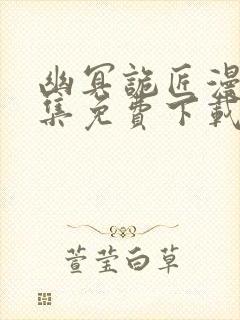 幽冥詭匠漫
集免費下載
萱莹白草